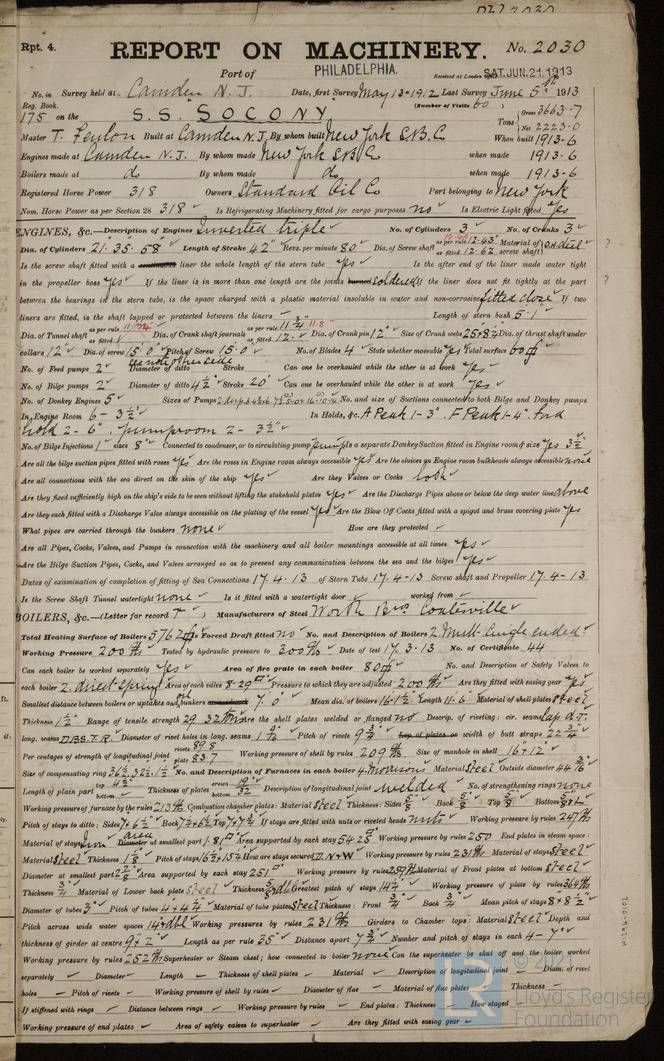 Rpt. 4.
REPORT ON MACHINERY. No. 2030
Port of PHILADELPHIA. Received at London SAT. JUN. 21. 1913
No. in Survey held at Camden N.J. Date, first Survey May 13-1912 Last Survey June 5th 1913
Reg. Book. (Number of Visits 60)
175 on the S.S. "SOCONY" Tons Gross 3663.7 Net 2223.0
Master T. Fenlon Built at Camden N.J. By whom built New York S.B.C. When built 1913-6
Engines made at Camden N.J. By whom made New York S.B.C. when made 1913-6
Boilers made at do By whom made do when made 1913-6
Registered Horse Power 318 Owners Standard Oil Co Port belonging to New York
Nom. Horse Power as per Section 28 318 Is Refrigerating Machinery fitted for cargo purposes no Is Electric Light fitted yes
ENGINES, &c.—Description of Engines Inverted triple No. of Cylinders 3 No. of Cranks 3
Dia. of Cylinders 21. 35. 58" Length of Stroke 42" Revs. per minute 80 Dia. of Screw shaft as per rule 12.43" as fitted 12.62 Material of screw shaft
Is the screw shaft fitted with a continuous liner the whole length of the stern tube yes Is the after end of the liner made water tight
in the propeller boss yes If the liner is in more than one length are the joints burned soldered If the liner does not fit tightly at the part
between the bearings in the stern tube, is the space charged with a plastic material insoluble in water and non-corrosive fitted close If two
liners are fitted, is the shaft lapped or protected between the liners — Length of stern bush 5.1
Dia. of Tunnel shaft as per rule as fitted Dia. of Crank shaft journals as per rule 11¾ 11.8" as fitted 12. Dia. of Crank pin 12" Size of Crank webs 25x8½ Dia. of thrust shaft under
collars 12" Dia. of screw 15.0" Pitch of Screw 15.0 No. of Blades 4 State whether moveable yes Total surface 60
No. of Feed pumps 2 Diameter of ditto see note other side Stroke Can one be overhauled while the other is at work yes
No. of Bilge pumps 2 Diameter of ditto 4½ Stroke 20 Can one be overhauled while the other is at work yes
No. of Donkey Engines 5 Sizes of Pumps No. and size of Suctions connected to both Bilge and Donkey pumps
In Engine Room 6 - 3½" In Holds, &c. A Peak 1-3". F Peak 1-4". Ford
hold 2 - 6". pumproom 2 - 3½"
No. of Bilge Injections 1 sizes 8" Connected to condenser, or to circulating pump pump Is a separate Donkey Suction fitted in Engine room & size yes 3½"
Are all the bilge suction pipes fitted with roses yes Are the roses in Engine room always accessible yes Are the sluices on Engine room bulkheads always accessible none
Are all connections with the sea direct on the skin of the ship yes Are they Valves or Cocks both
Are they fixed sufficiently high on the ship's side to be seen without lifting the stokehold plates yes Are the Discharge Pipes above or below the deep water line above
Are they each fitted with a Discharge Valve always accessible on the plating of the vessel yes Are the Blow Off Cocks fitted with a spigot and brass covering plate yes
What pipes are carried through the bunkers none How are they protected
Are all Pipes, Cocks, Valves, and Pumps in connection with the machinery and all boiler mountings accessible at all times yes
Are the Bilge Suction Pipes, Cocks, and Valves arranged so as to prevent any communication between the sea and the bilges yes
Dates of examination of completion of fitting of Sea Connections 17.4.13 of Stern Tube 17.4-13 Screw shaft and Propeller 17.4-13
Is the Screw Shaft Tunnel watertight none Is it fitted with a watertight door worked from
BOILERS, &c.—(Letter for record ) Manufacturers of Steel Worth Bros Coatesville
Total Heating Surface of Boilers 5762 Is Forced Draft fitted no No. and Description of Boilers 2 Mult. Single ended
Working Pressure 200 lbs Tested by hydraulic pressure to 300 lbs Date of test 17.3.13 No. of Certificate 44
Can each boiler be worked separately yes Area of fire grate in each boiler 80 No. and Description of Safety Valves to
each boiler 2. direct spring Area of each valve 8.29 Pressure to which they are adjusted 200 lbs Are they fitted with easing gear yes
Smallest distance between boilers or uptakes and oil bunkers 7.0" Mean dia. of boilers 16-1½ Length 11.6 Material of shell plates steel
Thickness 1½" Range of tensile strength 29.32 tons Are the shell plates welded or flanged no Descrip. of riveting: cir. seams lap d.T.
long. seams D.B.S.T.R Diameter of rivet holes in long. seams 1 9/16 Pitch of rivets 9¾ Lap of plates or width of butt straps 22¾
Per centages of strength of longitudinal joint rivets 89.8 plate 83.7 Working pressure of shell by rules 209 lbs Size of manhole in shell 16"x12"
Size of compensating ring No. and Description of Furnaces in each boiler 4. Morisons Material steel Outside diameter 44
Length of plain part top bottom Thickness of plates crown bottom 19/32 Description of longitudinal joint welded No. of strengthening rings none
Working pressure of furnace by the rules 213 lbs Combustion chamber plates: Material steel Thickness: Sides 5/8 Back 5/8 Top 5/8 Bottom
Pitch of stays to ditto: Sides 7x6½ Back Top If stays are fitted with nuts or riveted heads nuts Working pressure by rules 247 lbs
Material of stays Iron area Diameter at smallest part 1.81 Area supported by each stay 54.25 Working pressure by rules 250 End plates in steam space:
Material steel Thickness 1 1/8 Pitch of stays 16½x15½ How are stays secured D.N+W Working pressure by rules 231 lbs Material of stays steel
Diameter at smallest part Area supported by each stay 251 Working pressure by rules Material of Front plates at bottom steel
Thickness ¾ Material of Lower back plate steel Thickness Greatest pitch of stays 14½ Working pressure of plate by rules 364 lbs
Diameter of tubes 3" Pitch of tubes 4¼x4¼ Material of tube plates steel Thickness: Front ¾ Back ¾ Mean pitch of stays 8x8½
Pitch across wide water spaces 14½ dbl Working pressures by rules 231 lbs Girders to Chamber tops: Material steel Depth and
thickness of girder at centre 9x2" Length as per rule 35 Distance apart 7¾ Number and pitch of stays in each 4-7"
Working pressure by rules 252 lbs Superheater or Steam chest; how connected to boiler none Can the superheater be shut off and the boiler worked
separately — Diameter — Length — Thickness of shell plates — Material — Description of longitudinal joint — Diam. of rivet
holes — Pitch of rivets — Working pressure of shell by rules — Diameter of flue — Material of flue plates — Thickness —
If stiffened with rings — Distance between rings — Working pressure by rules — End plates: Thickness — How stayed —
Working pressure of end plates — Area of safety valves to superheater — Are they fitted with easing gear —
LR
Lloyd's Register
Foundation